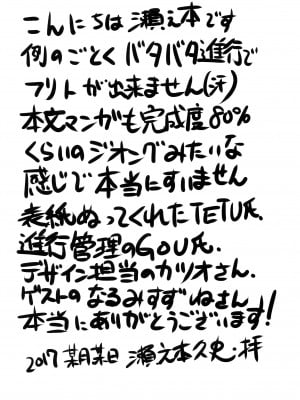 こんにちは 瀬之本です
例のごとく バタバタ進行で
フリトが出来ません(汗)
本文マンガも完成度80%
くらいのジオングみたいな
感じで本当にすいません
表紙ぬってくれたTETU氏.
進行管理のGOU氏.
デザイン担当のカツオさん.
ゲストの なるみすずねさん
本当にありがとうございます!
2017 某月某日 瀬之本久史・拝